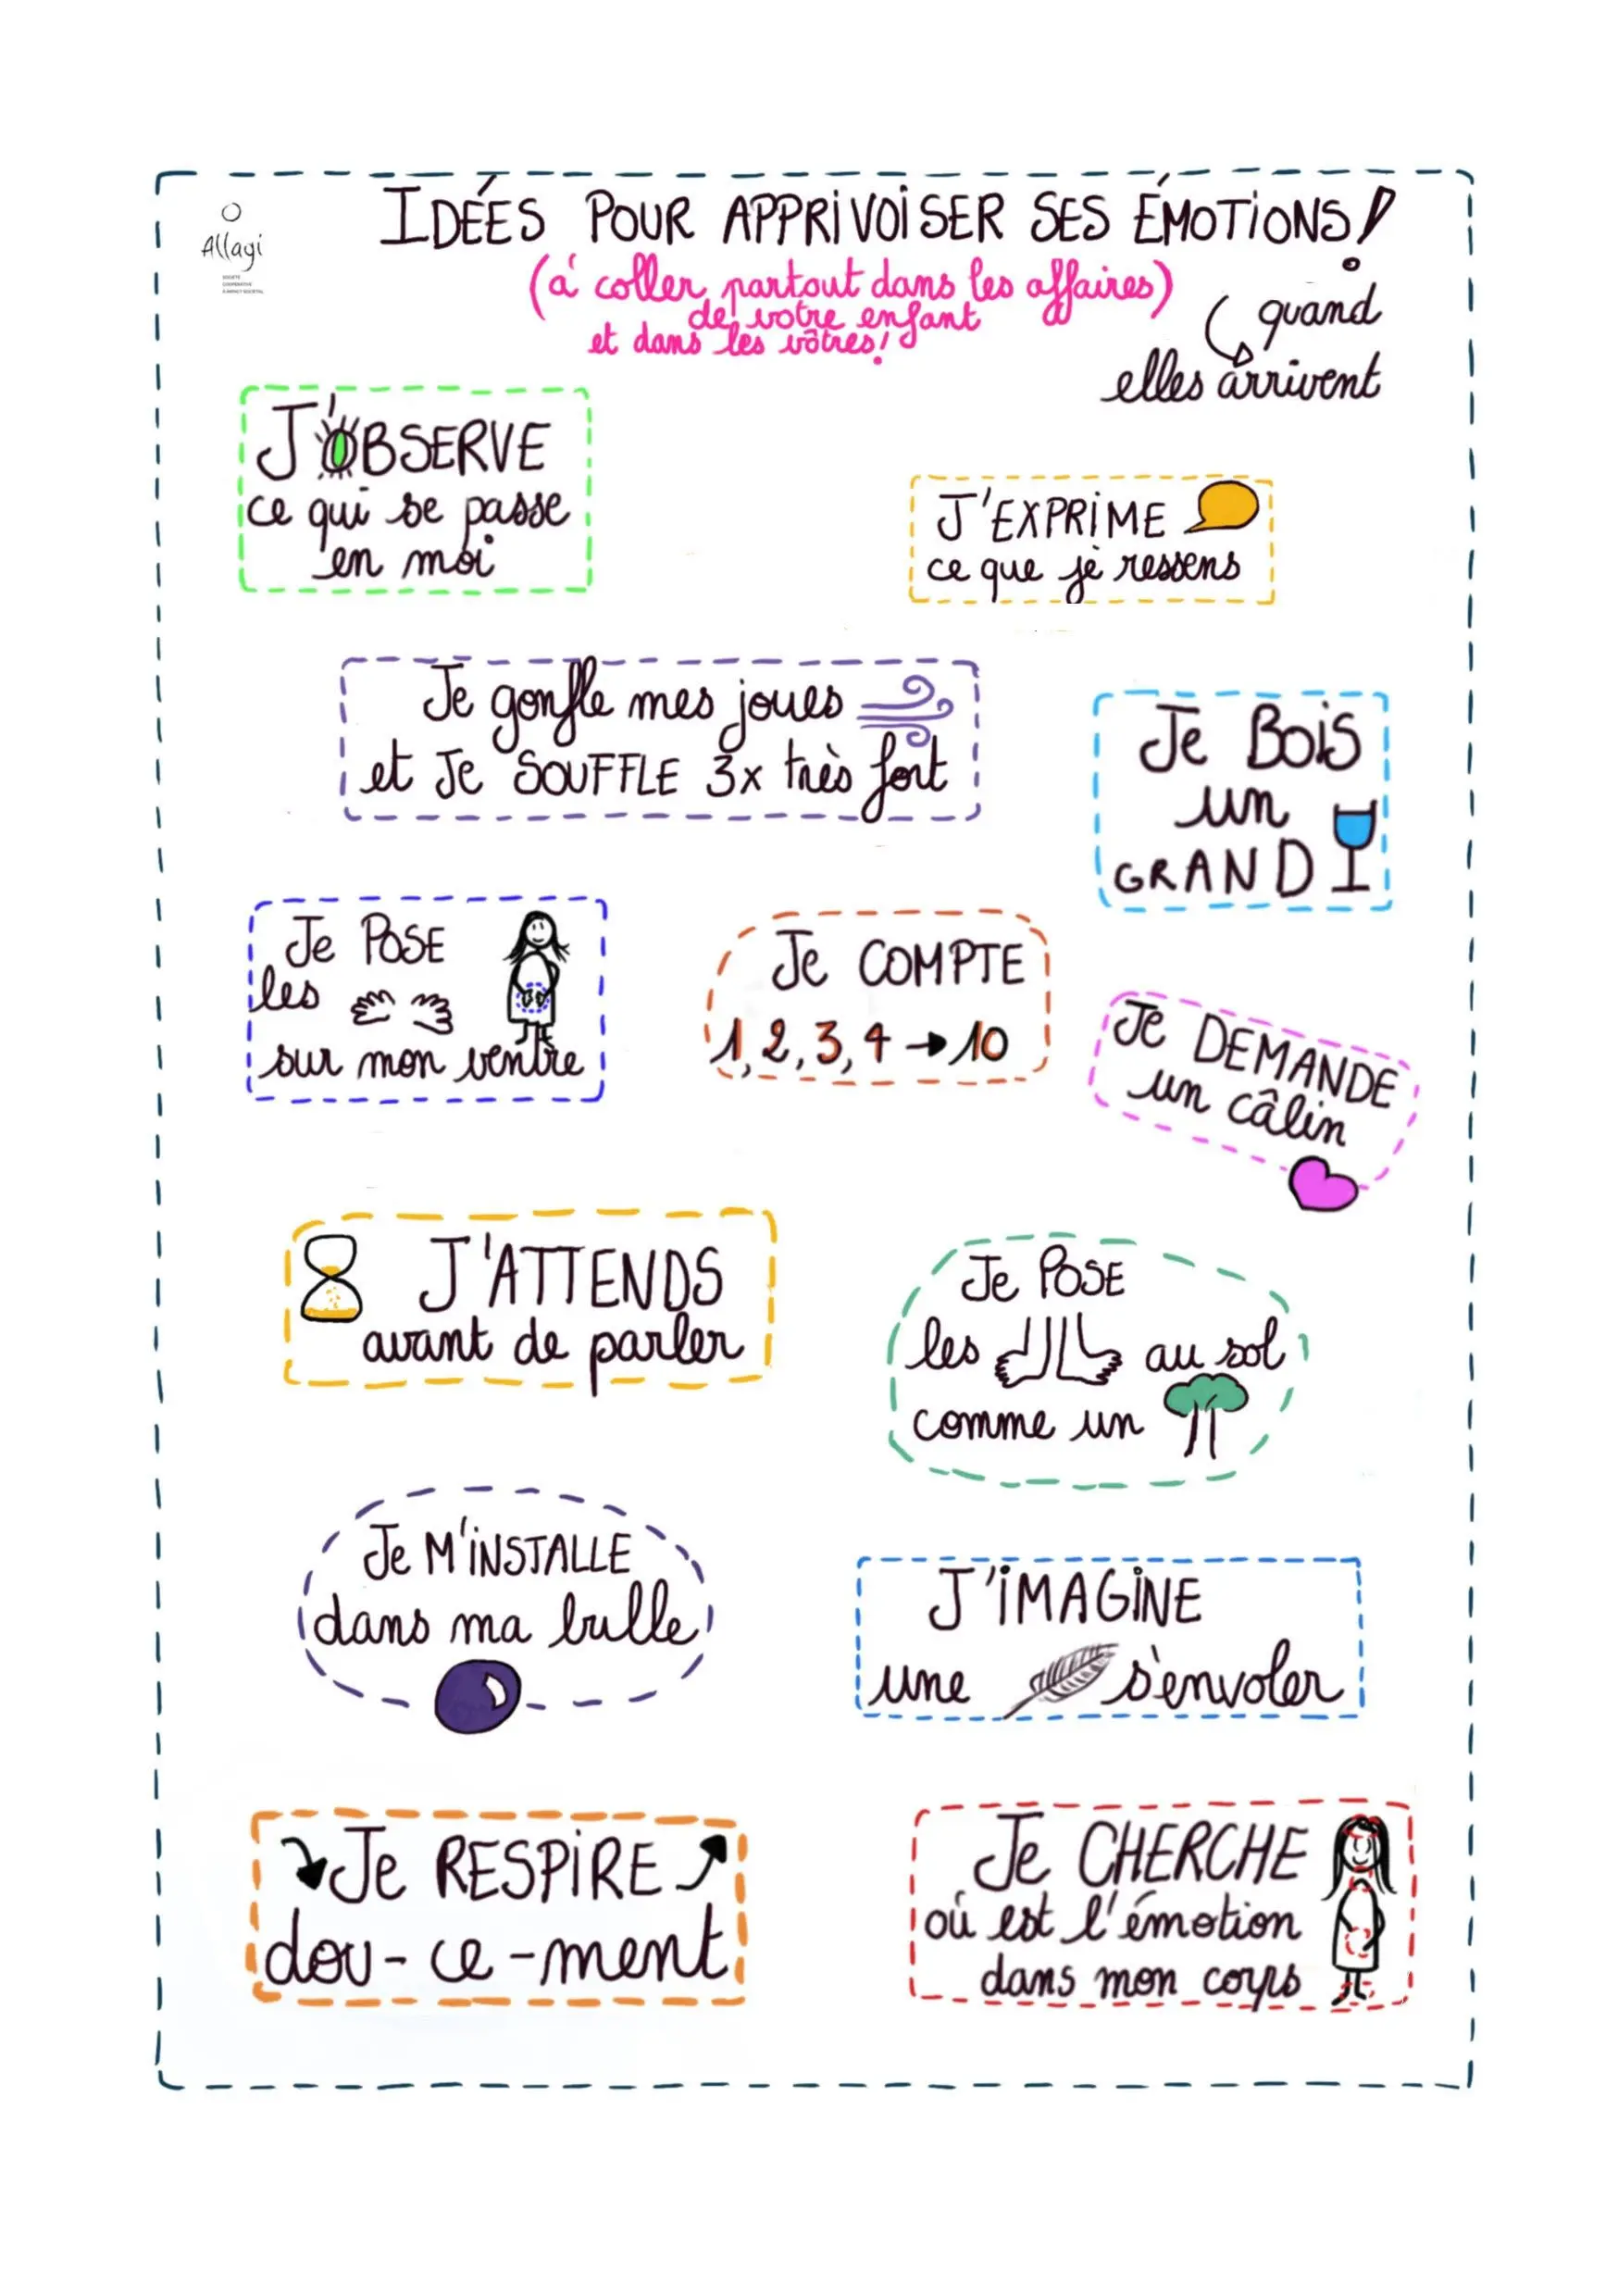 Allagi
SOCIÉTÉ
COOPÉRATIVE
À IMPACT SOCIÉTAL
IDÉES POUR APPRIVOISER SES ÉMOTIONS!
(à coller partout dans les affaires)
de votre enfant
et dans les vôtres!
quand
elles arrivent
J'OBSERVE
ce qui se passe
en moi
J'EXPRIME
ce que je ressens
Je gonfle mes joues
et Je SOUFFLE 3x très fort
Je BOIS
un
GRAND
Je POSE
les
sur mon ventre
Je COMPTE
1, 2, 3, 4 → 10
Je DEMANDE
un câlin
J'ATTENDS
avant de parler
Je POSE
les au sol
comme un
Je M'INSTALLE
dans ma bulle
J'IMAGINE
une s'envoler
Je RESPIRE
dou-ce-ment
Je CHERCHE
où est l'émotion
dans mon corps